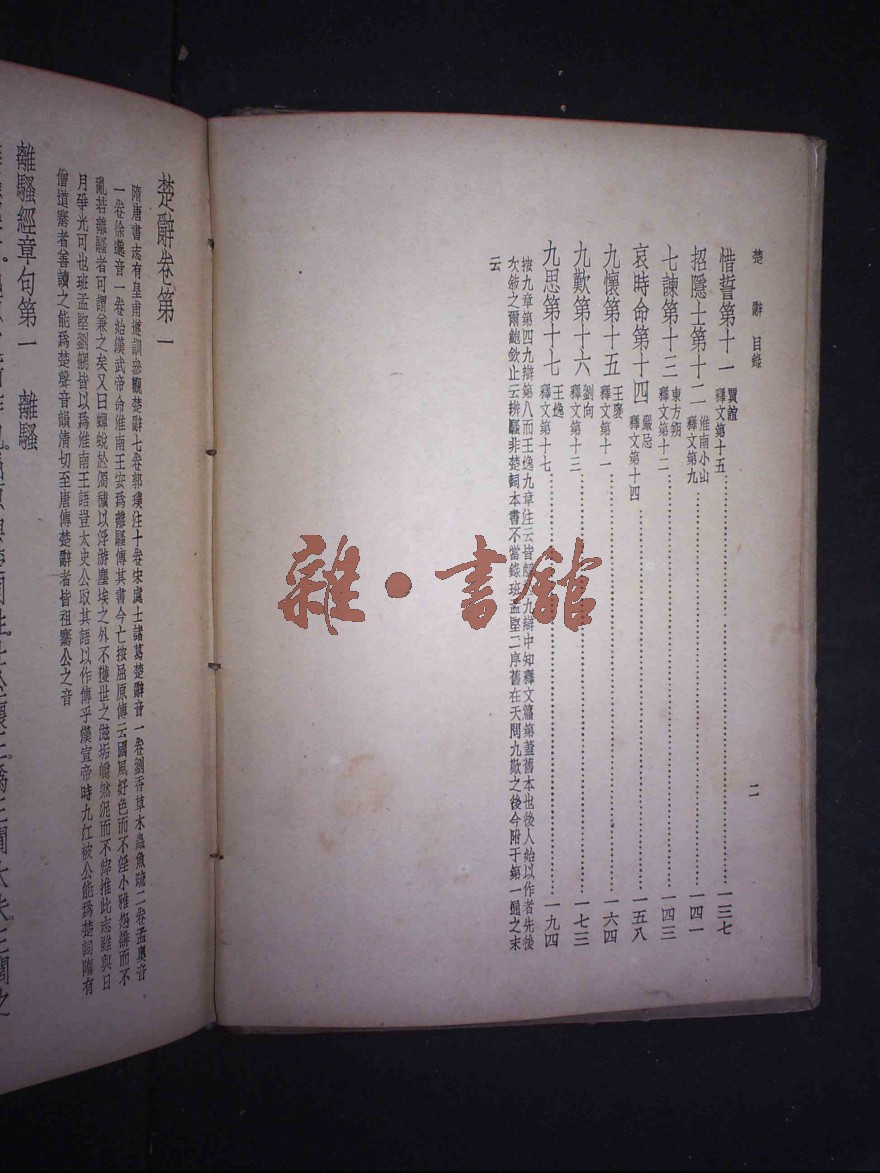 楚辭 目錄
二
惜誓第十一 賈誼 釋文第十五 一三七
招隱士第十二 淮南小山 釋文第九 一四一
七諫第十三 東方朔 釋文第十二 一四三
哀時命第十四 嚴忌 釋文第十四 一五八
九懷第十五 王褒 釋文第十一 一六四
九歎第十六 劉向 釋文第十三 一七三
九思第十七 王逸 釋文第十七 一九四
按九章第四九辯第八而王逸九章注云皆解於九辯中知釋文篇第蓋舊本也後人始以作者先後
次敘之爾鮑欽止云辨騷非楚詞本書不當錄班孟堅二序舊在天問九歎之後今附于第一通之末
云
楚辭卷第一
隋唐書志有皇甫遵訓參觀楚辭七卷郭璞注十卷宋處士諸葛楚辭音一卷劉杳草木蟲魚疏二卷孟奧音
一卷徐邈音一卷始漢武帝命淮南王安爲離騷傳其書今亡按屈原傳云國風好色而不淫小雅怨誹而不
亂若離騷者可謂兼之矣又曰蟬蛻於濁穢以浮游塵埃之外不獲世之滋垢皭然泥而不滓推此志雖與日
月爭光可也班孟堅劉勰皆以爲淮南王語豈太史公取其語以作傳乎漢宣帝時九江被公能爲楚詞隋有
僧道騫者善讀之能爲楚聲音韻清切至唐傳楚辭者皆祖騫公之音
離騷經章句第一 離騷
雜·書館